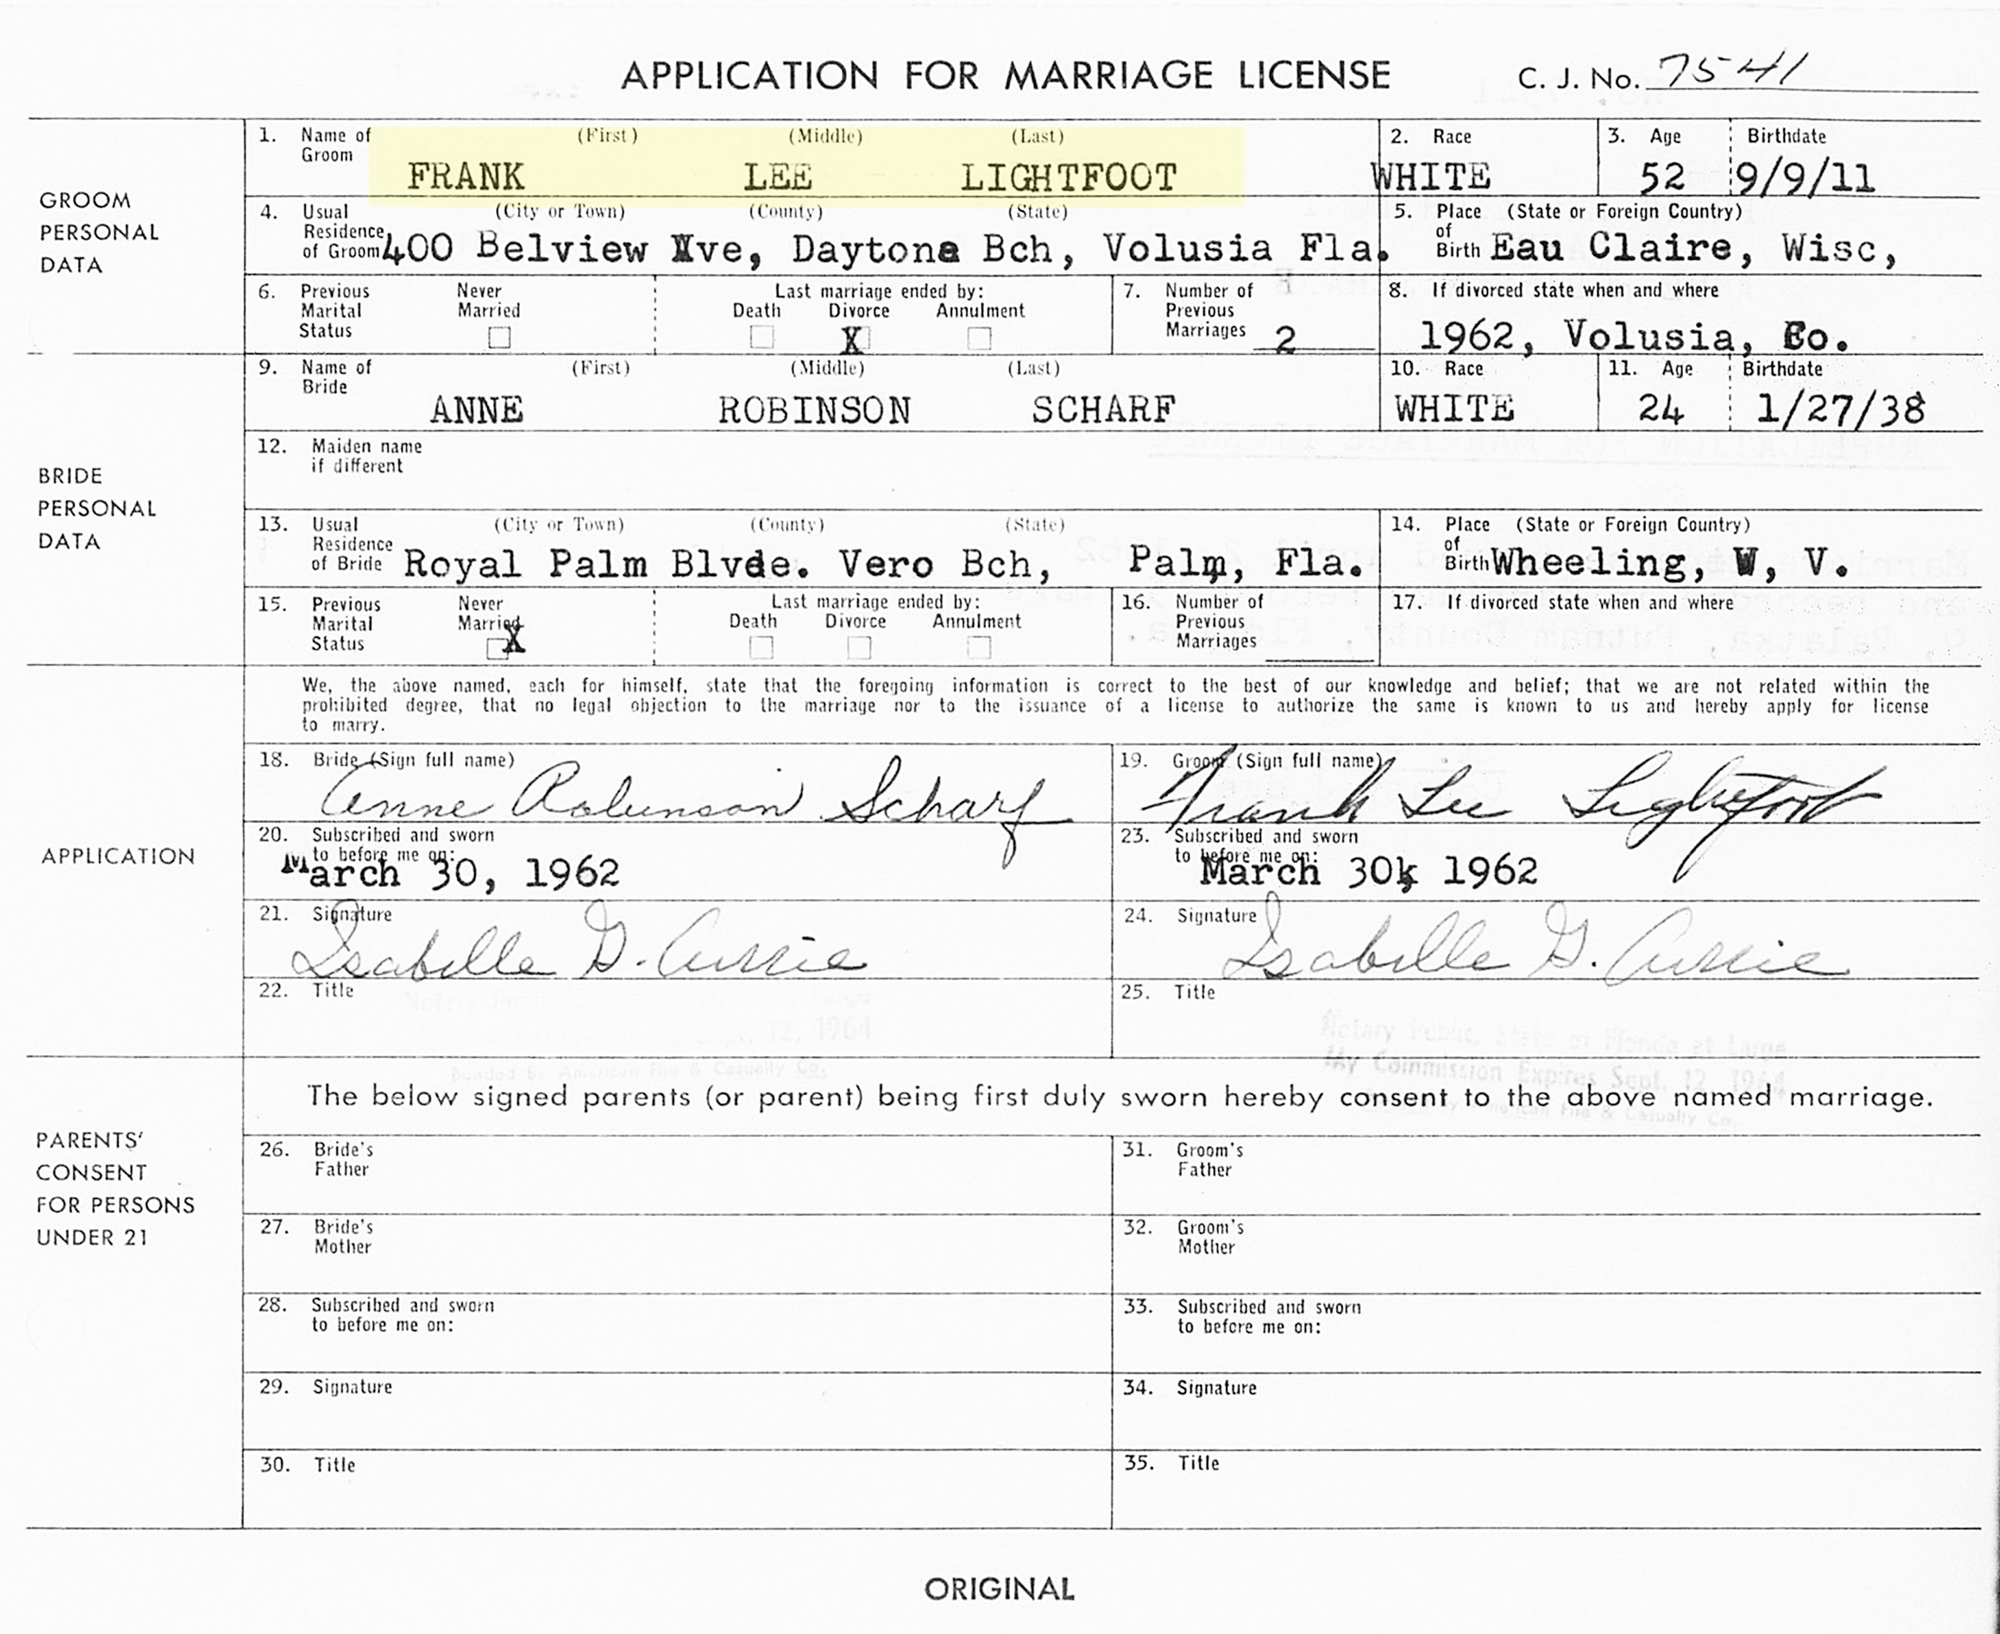 APPLICATION FOR MARRIAGE LICENSE C. J. No. 7541
GROOM PERSONAL DATA
1. Name of Groom (First) (Middle) (Last)
FRANK LEE LIGHTFOOT
2. Race
WHITE
3. Age
52
Birthdate
9/9/11
4. Usual Residence of Groom (City or Town) (County) (State)
400 Belview Ave, Daytona Bch, Volusia Fla.
5. Place of Birth (State or Foreign Country)
Eau Claire, Wisc,
6. Previous Marital Status
Never Married
Last marriage ended by:
Death Divorce Annulment
X
7. Number of Previous Marriages 2
8. If divorced state when and where
1962, Volusia, Co.
BRIDE PERSONAL DATA
9. Name of Bride (First) (Middle) (Last)
ANNE ROBINSON SCHARF
10. Race
WHITE
11. Age
24
Birthdate
1/27/38
12. Maiden name if different
13. Usual Residence of Bride (City or Town) (County) (State)
Royal Palm Blvde. Vero Bch, Palm, Fla.
14. Place of Birth (State or Foreign Country)
Wheeling, W, V.
15. Previous Marital Status
Never Married
X
Last marriage ended by:
Death Divorce Annulment
16. Number of Previous Marriages
17. If divorced state when and where
APPLICATION
We, the above named, each for himself, state that the foregoing information is correct to the best of our knowledge and belief; that we are not related within the
prohibited degree, that no legal objection to the marriage nor to the issuance of a license to authorize the same is known to us and hereby apply for license
to marry.
18. Bride (Sign full name)
Anne Robinson Scharf
19. Groom (Sign full name)
Frank Lee Lightfoot
20. Subscribed and sworn to before me on:
March 30, 1962
23. Subscribed and sworn to before me on:
March 30, 1962
21. Signature
Isabelle G. Currie
24. Signature
Isabelle G. Currie
22. Title
Notary Public
My Commission Expires Sept. 12, 1964
Bonded By American Fire & Casualty Co.
25. Title
Notary Public, State of Florida at Large
My Commission Expires Sept. 12, 1964
American Fire & Casualty Co.
PARENTS' CONSENT FOR PERSONS UNDER 21
The below signed parents (or parent) being first duly sworn hereby consent to the above named marriage.
26. Bride's Father
31. Groom's Father
27. Bride's Mother
32. Groom's Mother
28. Subscribed and sworn to before me on:
33. Subscribed and sworn to before me on:
29. Signature
34. Signature
30. Title
35. Title
ORIGINAL